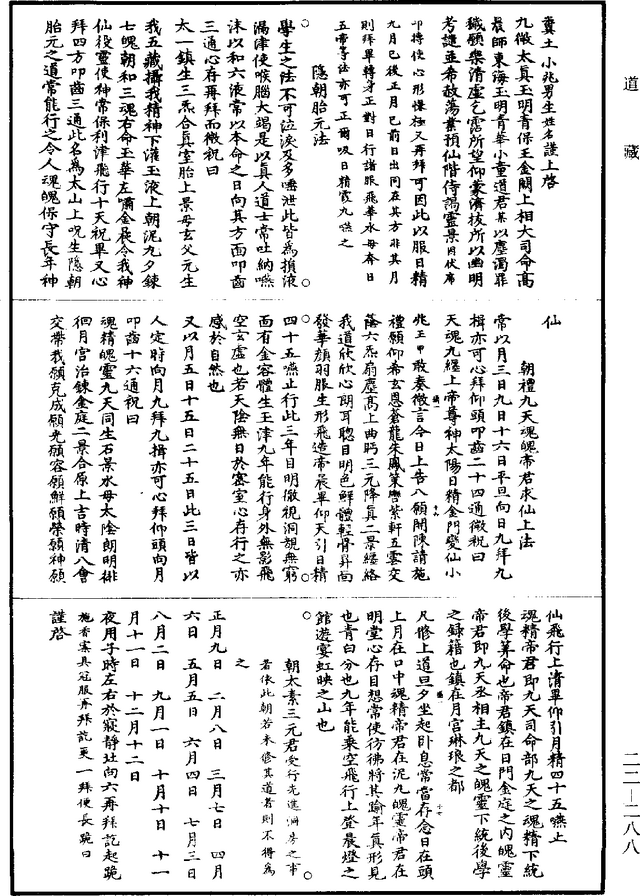 道藏
糞土小兆男生姓名謹上啓
九微太真玉明青保王金闕上相大司命高
晨師東海玉明青華小童道君某以塵濁罪
穢願樂清虛乞霑所望仰蒙濟拔所以幽明
考謹並希赦蕩業預仙階侍謁靈景因伏席
叩搏使心形慊極又再拜可因此以服日精
九月已後正月已前日出同在其方非其月
則拜畢轉身正對日行諸服飛華水母奔日
五帝等法亦可正爾吸日精霞九嚥之
隱朝胎元法
學生之法不可泣淚及多唾泄此皆爲損液
漏津使喉腦大竭是以真人道士常吐納嚥
沫以和六液常以本命之日向其方面叩齒
三通心存再拜而微祝曰
太一鎮生三炁合真室胎上景母玄父元生
我五藏攝我精神下灌玉液上朝泥丸夕鍊
七魄朝和三魂右命玉華左嘯金晨令我神
仙役靈使神常保利津飛行十天祝畢又心
拜四方叩齒三通此名爲太山上呪生隱朝
胎元之道常能行之令人魂魄保守長年神
仙
朝禮九天魂魄帝君求仙上法
常以月三日九日十六日平旦向日九拜九
揖亦可心拜仰頭叩齒二十四通微祝曰
天魂九纏上帝尊神太陽日精金門變仙小
兆王甲敢奏微言今日上告八願開陳請施
禮願仰希玄恩蒼龍朱鳳策轡紫軒五雲交
蔭六炁扇塵高上曲眄三元降真二景纏絡
我道欣欣心朗耳聰目明色鮮體輕骨昇面
發華顏羽服生形飛造帝晨畢仰天引日精
四十五嚥止行此三年目明徹視洞覩無窮
面有金容體生玉津九年能行身外無影飛
空玄虛也若天陰無日於密室心存行之亦
感於自然也
又以月五日十五日二十五日此三日皆以
人定時向月九拜九揖亦可心拜仰頭向月
叩齒十六通祝曰
魂精魄靈九天同生石景水母太陰朗明徘
徊月宮冶鍊金庭二景合原上吉時清八會
交帶我願克成願光願容願鮮願榮願神願
仙飛行上清畢仰引月精四十五嚥止
魂精帝君即九天司命部九天之魂精下統
後學筭命也帝君鎮在日門金庭之內魄靈
帝君即九天丞相主九天之魄靈下統後學
之錄籍也鎮在月宮琳琅之都
凡修上道旦夕坐起卧息常當存念日在頭
上月在口中魂精帝君在泥丸魄靈帝君在
明堂心存目想常使彷彿將其踰年真形見
也青白分也九年能乘空飛行上登晨燈之
館遊宴虹映之山也
朝太素三元君受行先進洞房之事
若依此朝若未修其道者則不得爲
之
正月九日　二月八日　三月七日　四月
六日　五月五日　六月四日　七月三日
八月二日　九月一日　十月十日　十一
月十一日　十二月十二日
夜用子時左右於寢靜处向六再拜訖起跪
施香案具冠服再拜訖更一拜便長跪曰
謹啓
二二—二八八